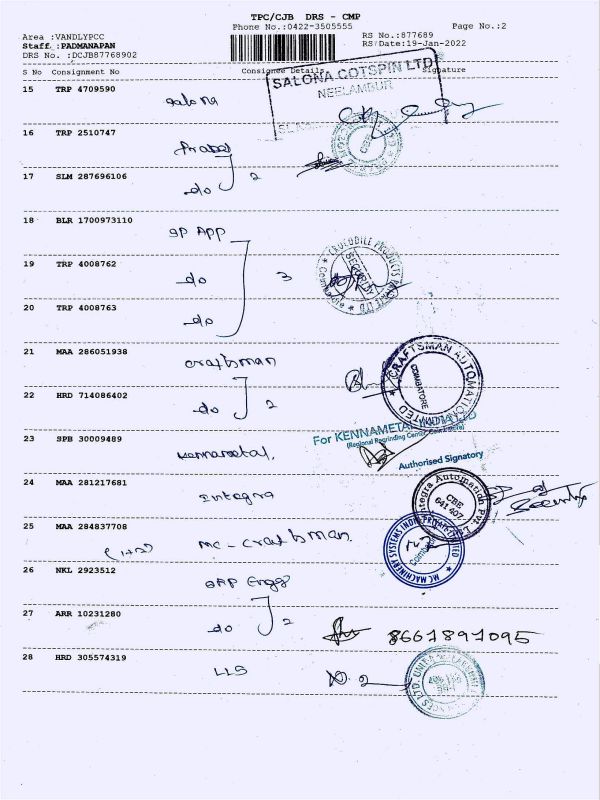 TPC/CJB DRS - CMP
Phone No.:0422-3505555
Page No.:2
Area :VANDLYPCC
Staff :PADMANAPAN
DRS No. :DCJB87768902
RS No.:877689
RS Date:19-Jan-2022
S No Consignment No Consignee Details Signature
SALONA COTSPIN LTD
NEELAMBUR
15 TRP 4709590
Salona
16 TRP 2510747
17 SLM 287696106
do 2
18 BLR 1700973110
GP App
19 TRP 4008762
do 3
20 TRP 4008763
do
CROCODILE PRODUCTS PRIVATE LTD
SECURITY
21 MAA 286051938
craftsman
22 HRD 714086402
do 2
CRAFTSMAN AUTOMATION LIMITED
COIMBATORE
23 SPB 30009489
Kennametal,
For KENNAMETAL INDIA LTD
(Regional Regrinding Center, Coimbatore)
Authorised Signatory
24 MAA 281217681
Integra
Integra Automation Pvt. Ltd
CBE
641 407
25 MAA 284837708
MC-craftsman.
MC MACHINERY SYSTEMS INDIA PRIVATE LIMITED
Coimbatore
26 NKL 2923512
27 ARR 10231280
do 2
8661891095
28 HRD 305574319
LLS